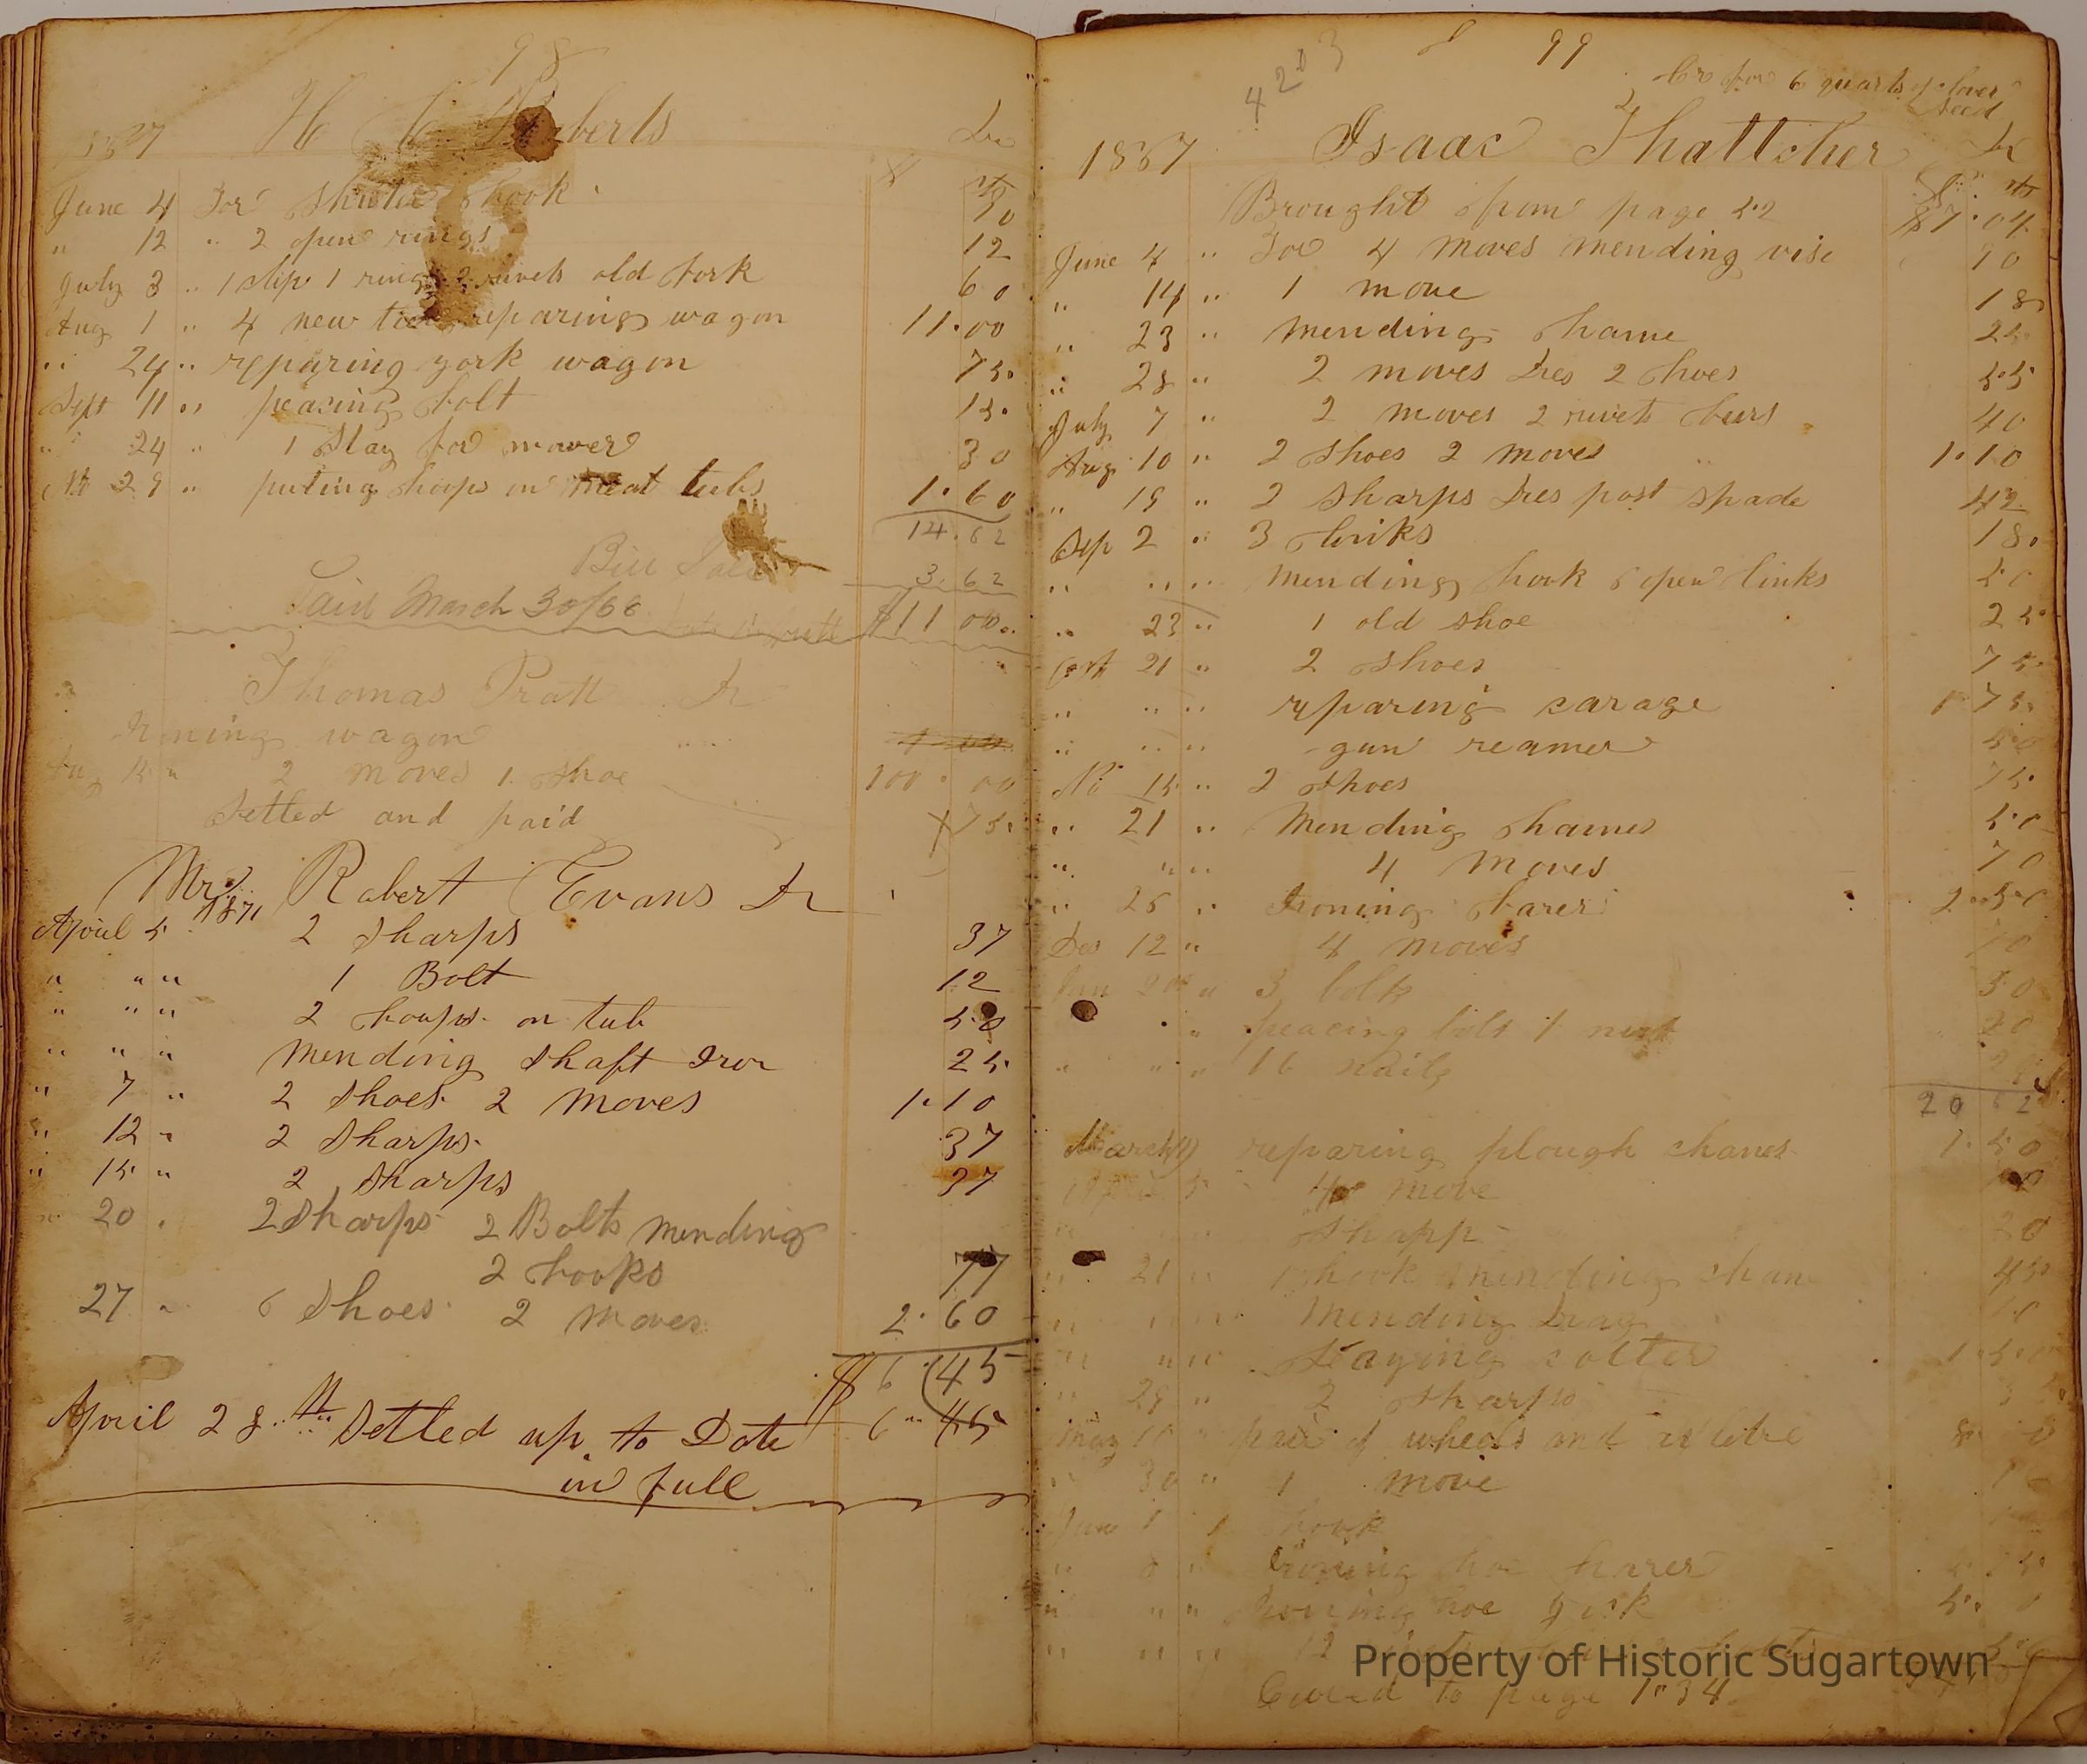 98
1867 H Roberts Dr
$ cts
June 4 For shuter hook 10
" 12 " 2 open rings 12
July 3 " 1 clip 1 ring 2 rivets old fork 60
Aug 1 " 4 new tires reparing wagon 11.00
" 24 " reparing york wagon 75
Sept 11 " peacing bolt 15
" 24 " 1 stay for mower 30
29 " puting hoops on meat tubs 1.60
14.62
Bill
3.62
Paid March 30/68
$11 00
Thomas Pratt Dr
Ironing wagon
Aug 15 " 2 moves 1 shoe 100.00
Setled and paid 75
Mr Robert Evans Dr
April 5 1871 2 sharps 37
" " " 1 Bolt 12
" " " 2 hoops on tub 50
" " " mending shaft Iron 25
" 7 " 2 shoes 2 moves 1.10
" 12 " 2 sharps 37
" 15 " 2 sharps 37
" 20 " 2 sharps 2 Bolts mending
2 hooks 77
27 " 6 shoes 2 moves 2.60
$ 6 45
April 28th Setled up to Date 6 " 45
in full
4203
99
Cr for 6 quarts of clover
seed
1867 Isaac Thattcher Dr
$ cts
Brought from page 52 87.04
June 4 " For 4 moves mending vise 90
" 14 " 1 move 18
" 23 " mending hame 25
" 28 " 2 moves Dres 2 shoes 55
July 7 " 2 moves 2 rivets burs 40
Aug 10 " 2 shoes 2 moves 1.10
" 19 " 2 sharps Dres post spade 42
Sep 2 " 3 links 18
" " " mending hook 6 open links 50
" 23 " 1 old shoe 25
Oct 21 " 2 shoes 75
" " " reparing carage 1 75
" " " gun reamer 50
No 15 " 2 shoes 75
" 21 " Mending hames 50
" " " 4 moves 70
" 26 " Ironing harer 2.50
Des 12 " 4 moves 70
Jan " 3 bolts 30
" " peacing bolt 1 nut 20
" " " 16 nails
20 62
March reparing plough chanes 1.50
April move
" " " sharp 20
" 21 " 1 hook mending chan 45
" " " Mending Drag
" " " Laying colter 1.50
" 28 " 2 sharps
May pair of wheels and
" 30 " 1 move
June 1 1 hook
" 8 " Ironing hoe harer
" " " Ironing hoe
" " " 12
to page 134
Property of Historic Sugartown